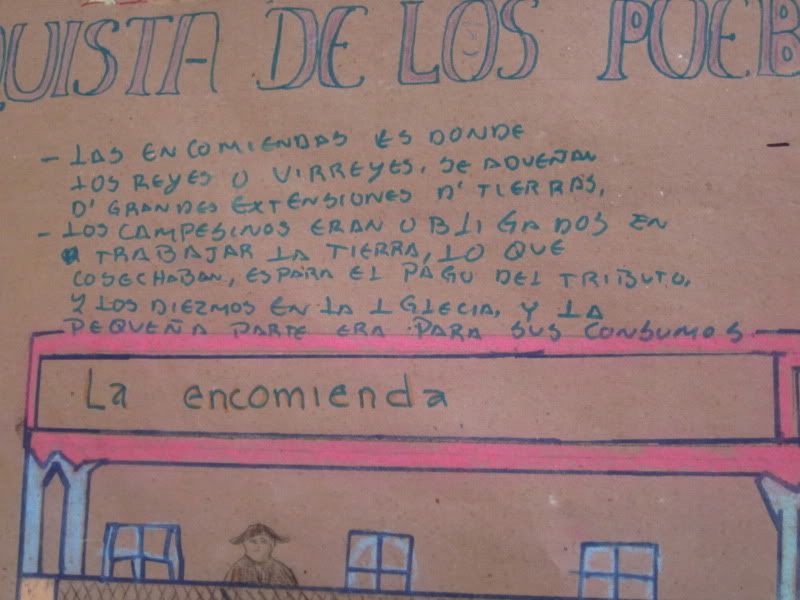 QUISTA DE LOS PUEB
- LAS ENCOMIENDAS ES DONDE
LOS REYES O VIRREYES, SE ADUEÑAN
D' GRANDES EXTENSIONES D' TIERRAS,
- LOS CAMPESINOS ERAN OBLIGADOS EN
TRABAJAR LA TIERRA, LO QUE
COSECHABAN, ES PARA EL PAGO DEL TRIBUTO,
Y LOS DIEZMOS EN LA IGLECIA, Y LA
PEQUEÑA PARTE ERA PARA SUS CONSUMOS
La encomienda